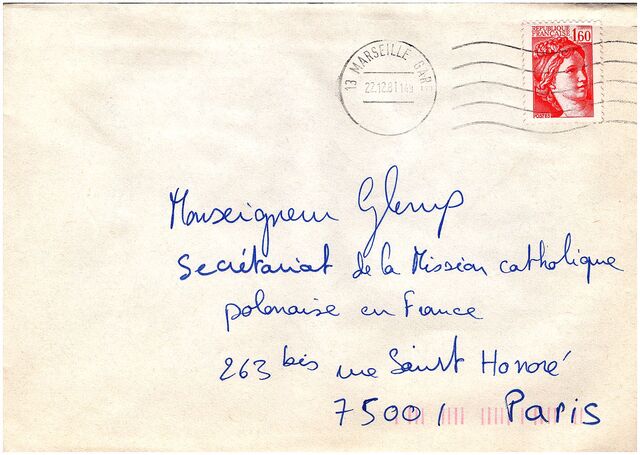 REPUBLIQUE FRANÇAISE 1,60
POSTES
13 MARSEILLE GARE
22.12.81
Monseigneur Glemp
Secrétariat de la Mission catholique
polonaise en France
263 bis rue Saint Honoré
75001 Paris